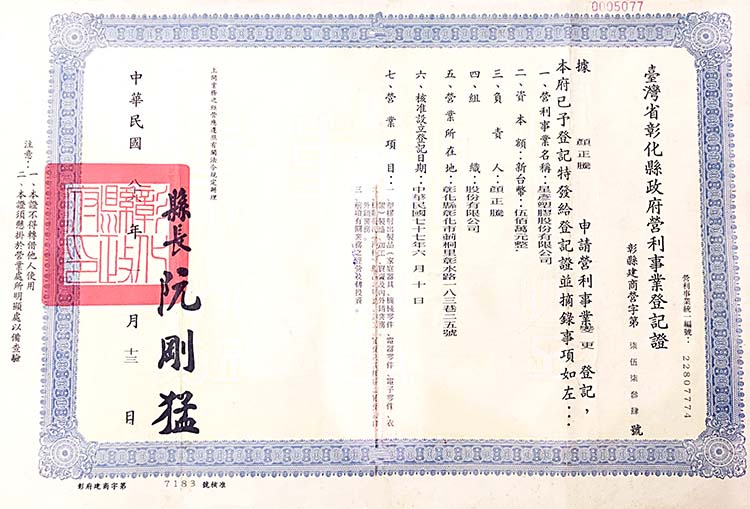 0005077
臺灣省彰化縣政府營利事業登記證
營利事業統一編號：22807774
彰縣建商營字第 柒伍柒參肆 號
據 顏正騰 申請營利事業變更登記，
本府已予登記特發給登記證並摘錄事項如左：
一、營利事業名稱：星彥塑膠股份有限公司
二、資本額：新台幣：伍佰萬元整
三、負責人：顏正騰
四、組織：股份有限公司
五、營業所在地：彰化縣彰化市莿桐里彰水路一八三巷二五號
六、核准設立登記日期：中華民國七十七年六月十日
七、營業項目：一、塑膠射出製品（家庭器具、機械零件、電器零件、電子零件、衣
外銷業務。
三、前項有關業務之經營及轉投資。
上開業務之經營應遵照有關法令規定辦理
縣長 阮剛猛
中華民國 八 年 月 十三 日
彰化縣政府印
注意：一、本證不得轉借他人使用
二、本證須懸掛於營業處所明顯處以備查驗
彰府建商字第 7183 號核准